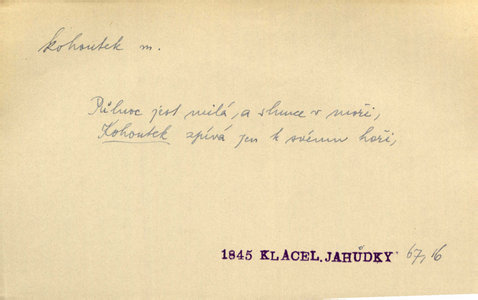 kohoutek m.
Půlnoc jest milá, a slunce v moři,
Kohoutek zpívá jen k svému hoři,
1845 KLACEL, JAHŮDKY 67, 16